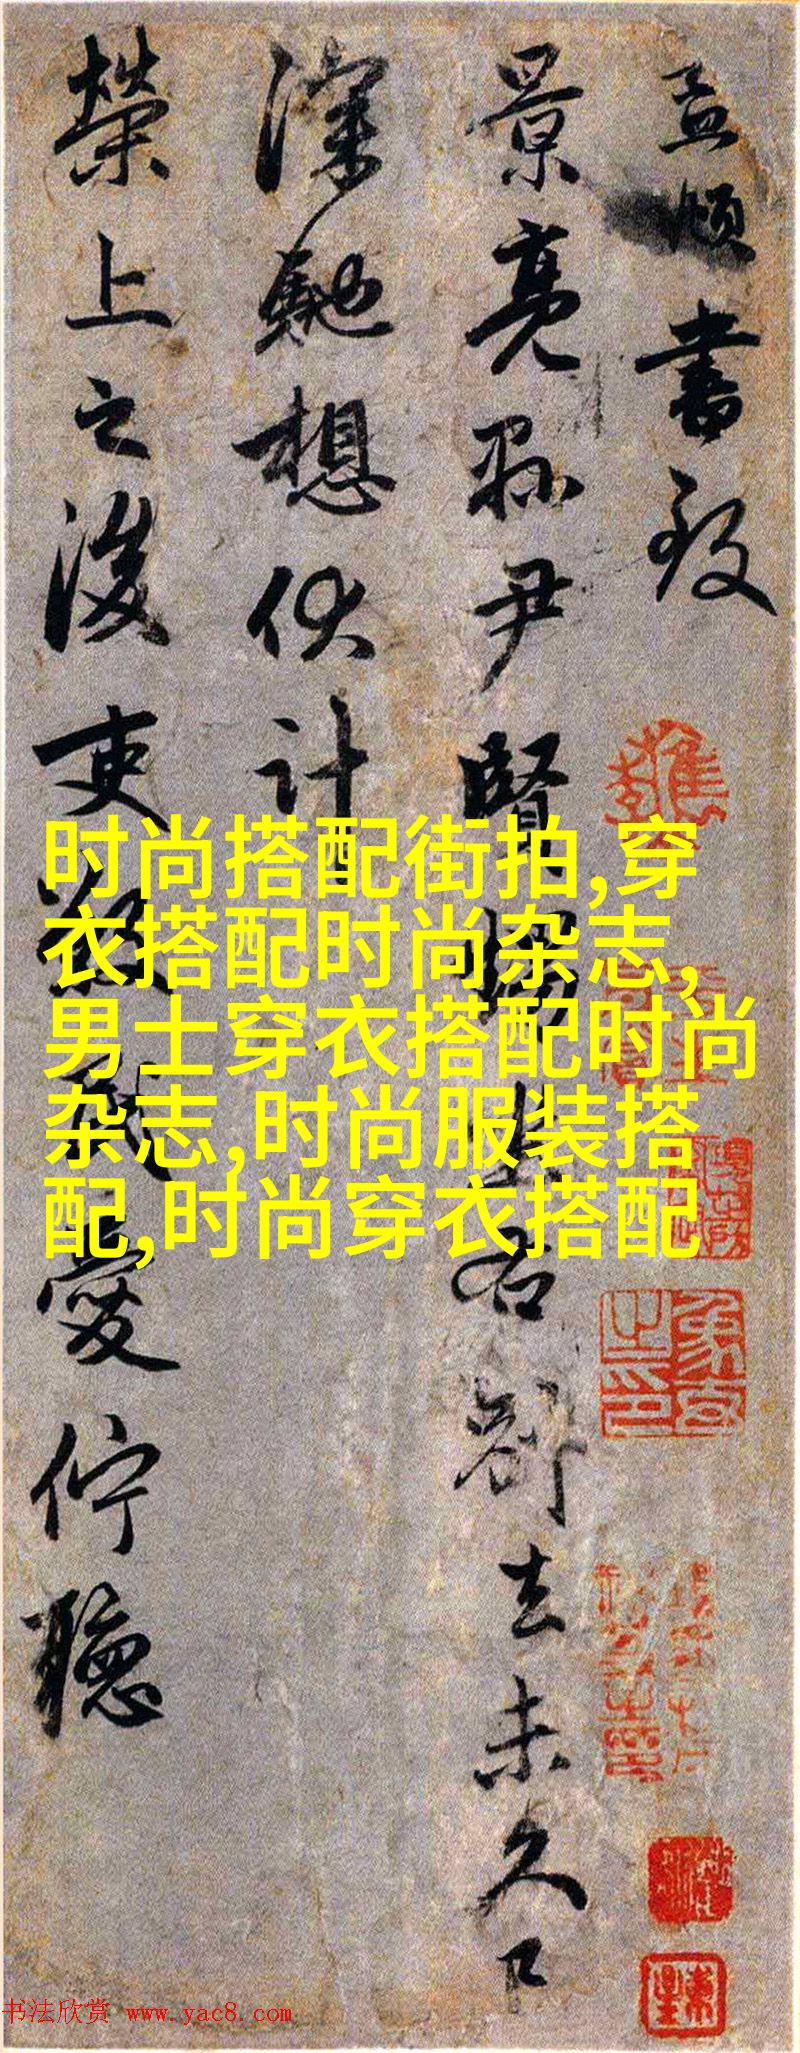 孟頫書致
景亮縣尹賢右去未久
深馳想伏計
榮上之後吏民愛佇聽
时尚搭配街拍,穿
衣搭配时尚杂志,
男士穿衣搭配时尚
杂志,时尚服装搭
配,时尚穿衣搭配
书法欣赏 www.yac8.com